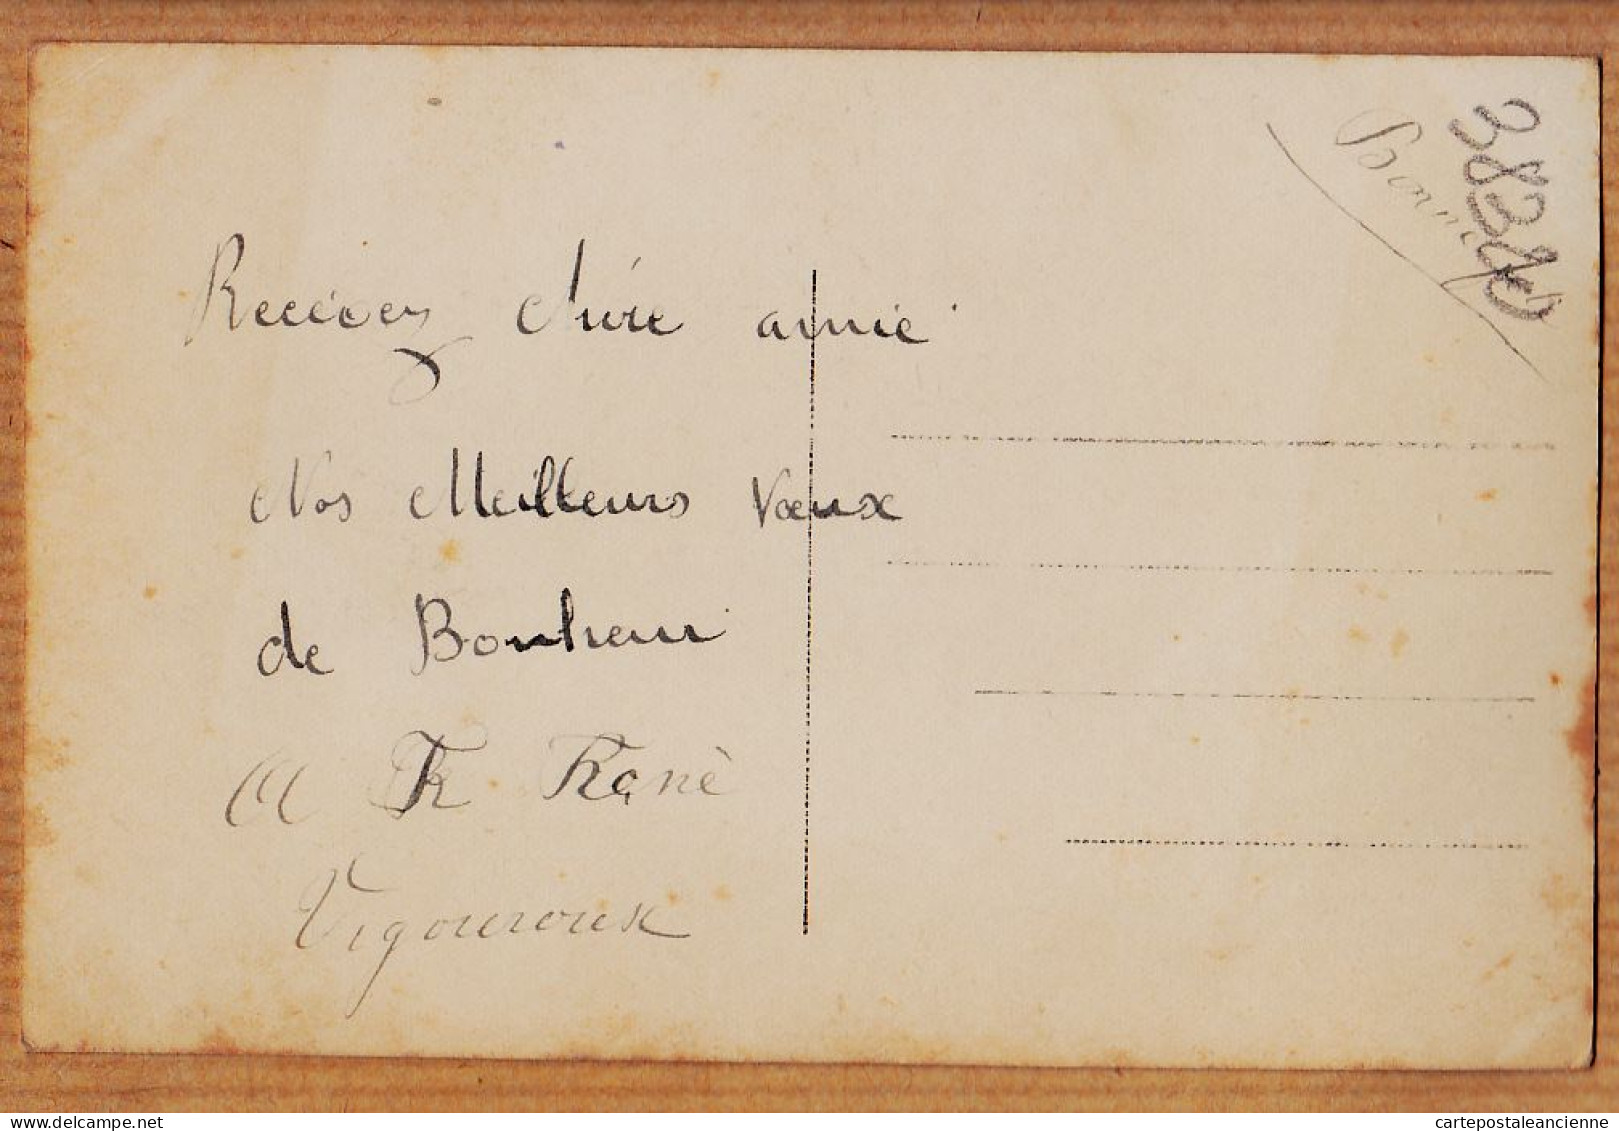 Recevez chère amie
Nos Meilleurs Vœux
de Bonheur
A R René
Vigouroux
Bonne
cartepostaleancienne
© delcampe.net